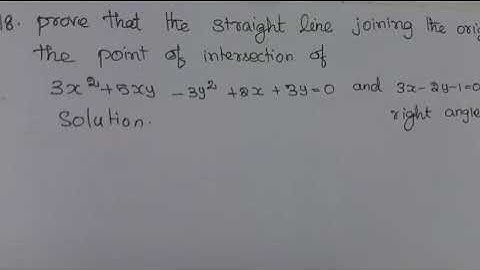 18. prove that the straight line joining the orig
the point of intersection of
3x²+5xy -3y² +2x +3y=0 and 3x-2y-1=0
Solution. right angle